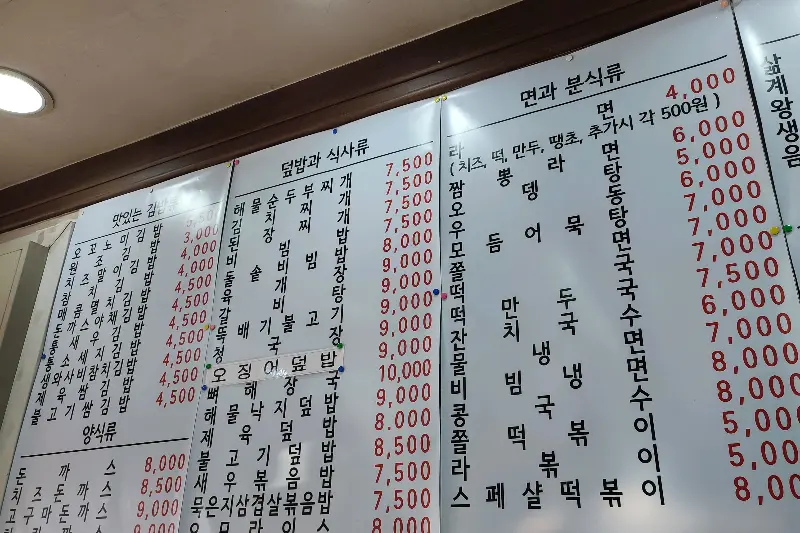 맛있는 김밥류
오꼬노미김밥
원조김밥 3,000
치즈김밥 4,000
4,000
4,500
4,500
4,500
4,500
4,500
4,500
와사비참치김밥 4,500
제육쌈김밥 4,500
불고기쌈김밥 4,500
양식류
돈까스 8,000
치즈돈까스 8,500
고구마돈까스 9,000
덮밥과 식사류
해물순두부찌개 7,500
김치찌개 7,500
된장찌개 7,500
비빔밥 8,000
돌솥비빔밥 9,000
육개장 9,000
갈비탕 9,000
뚝배기불고기 9,000
청국장 9,000
오징어덮밥 10,000
뼈해장국 9,000
해물낙지덮밥 8,000
제육덮밥 8,500
불고기덮밥 8,500
새우볶음밥 7,500
묵은지삼겹살볶음밥 7,500
오므라이스 8,000
면과 분식류
라면 4,000
(치즈, 떡, 만두, 땡초, 추가시 각 500원)
짬뽕라면 6,000
오뎅탕 5,000
우동 6,000
모듬어묵탕 7,000
쫄면 7,000
떡국 7,000
떡만두국 7,500
잔치국수 6,000
물냉면 7,000
비빔냉면 8,000
콩국수 8,000
쫄떡볶이 5,000
라볶이 5,00
스페샬떡볶이 8,0